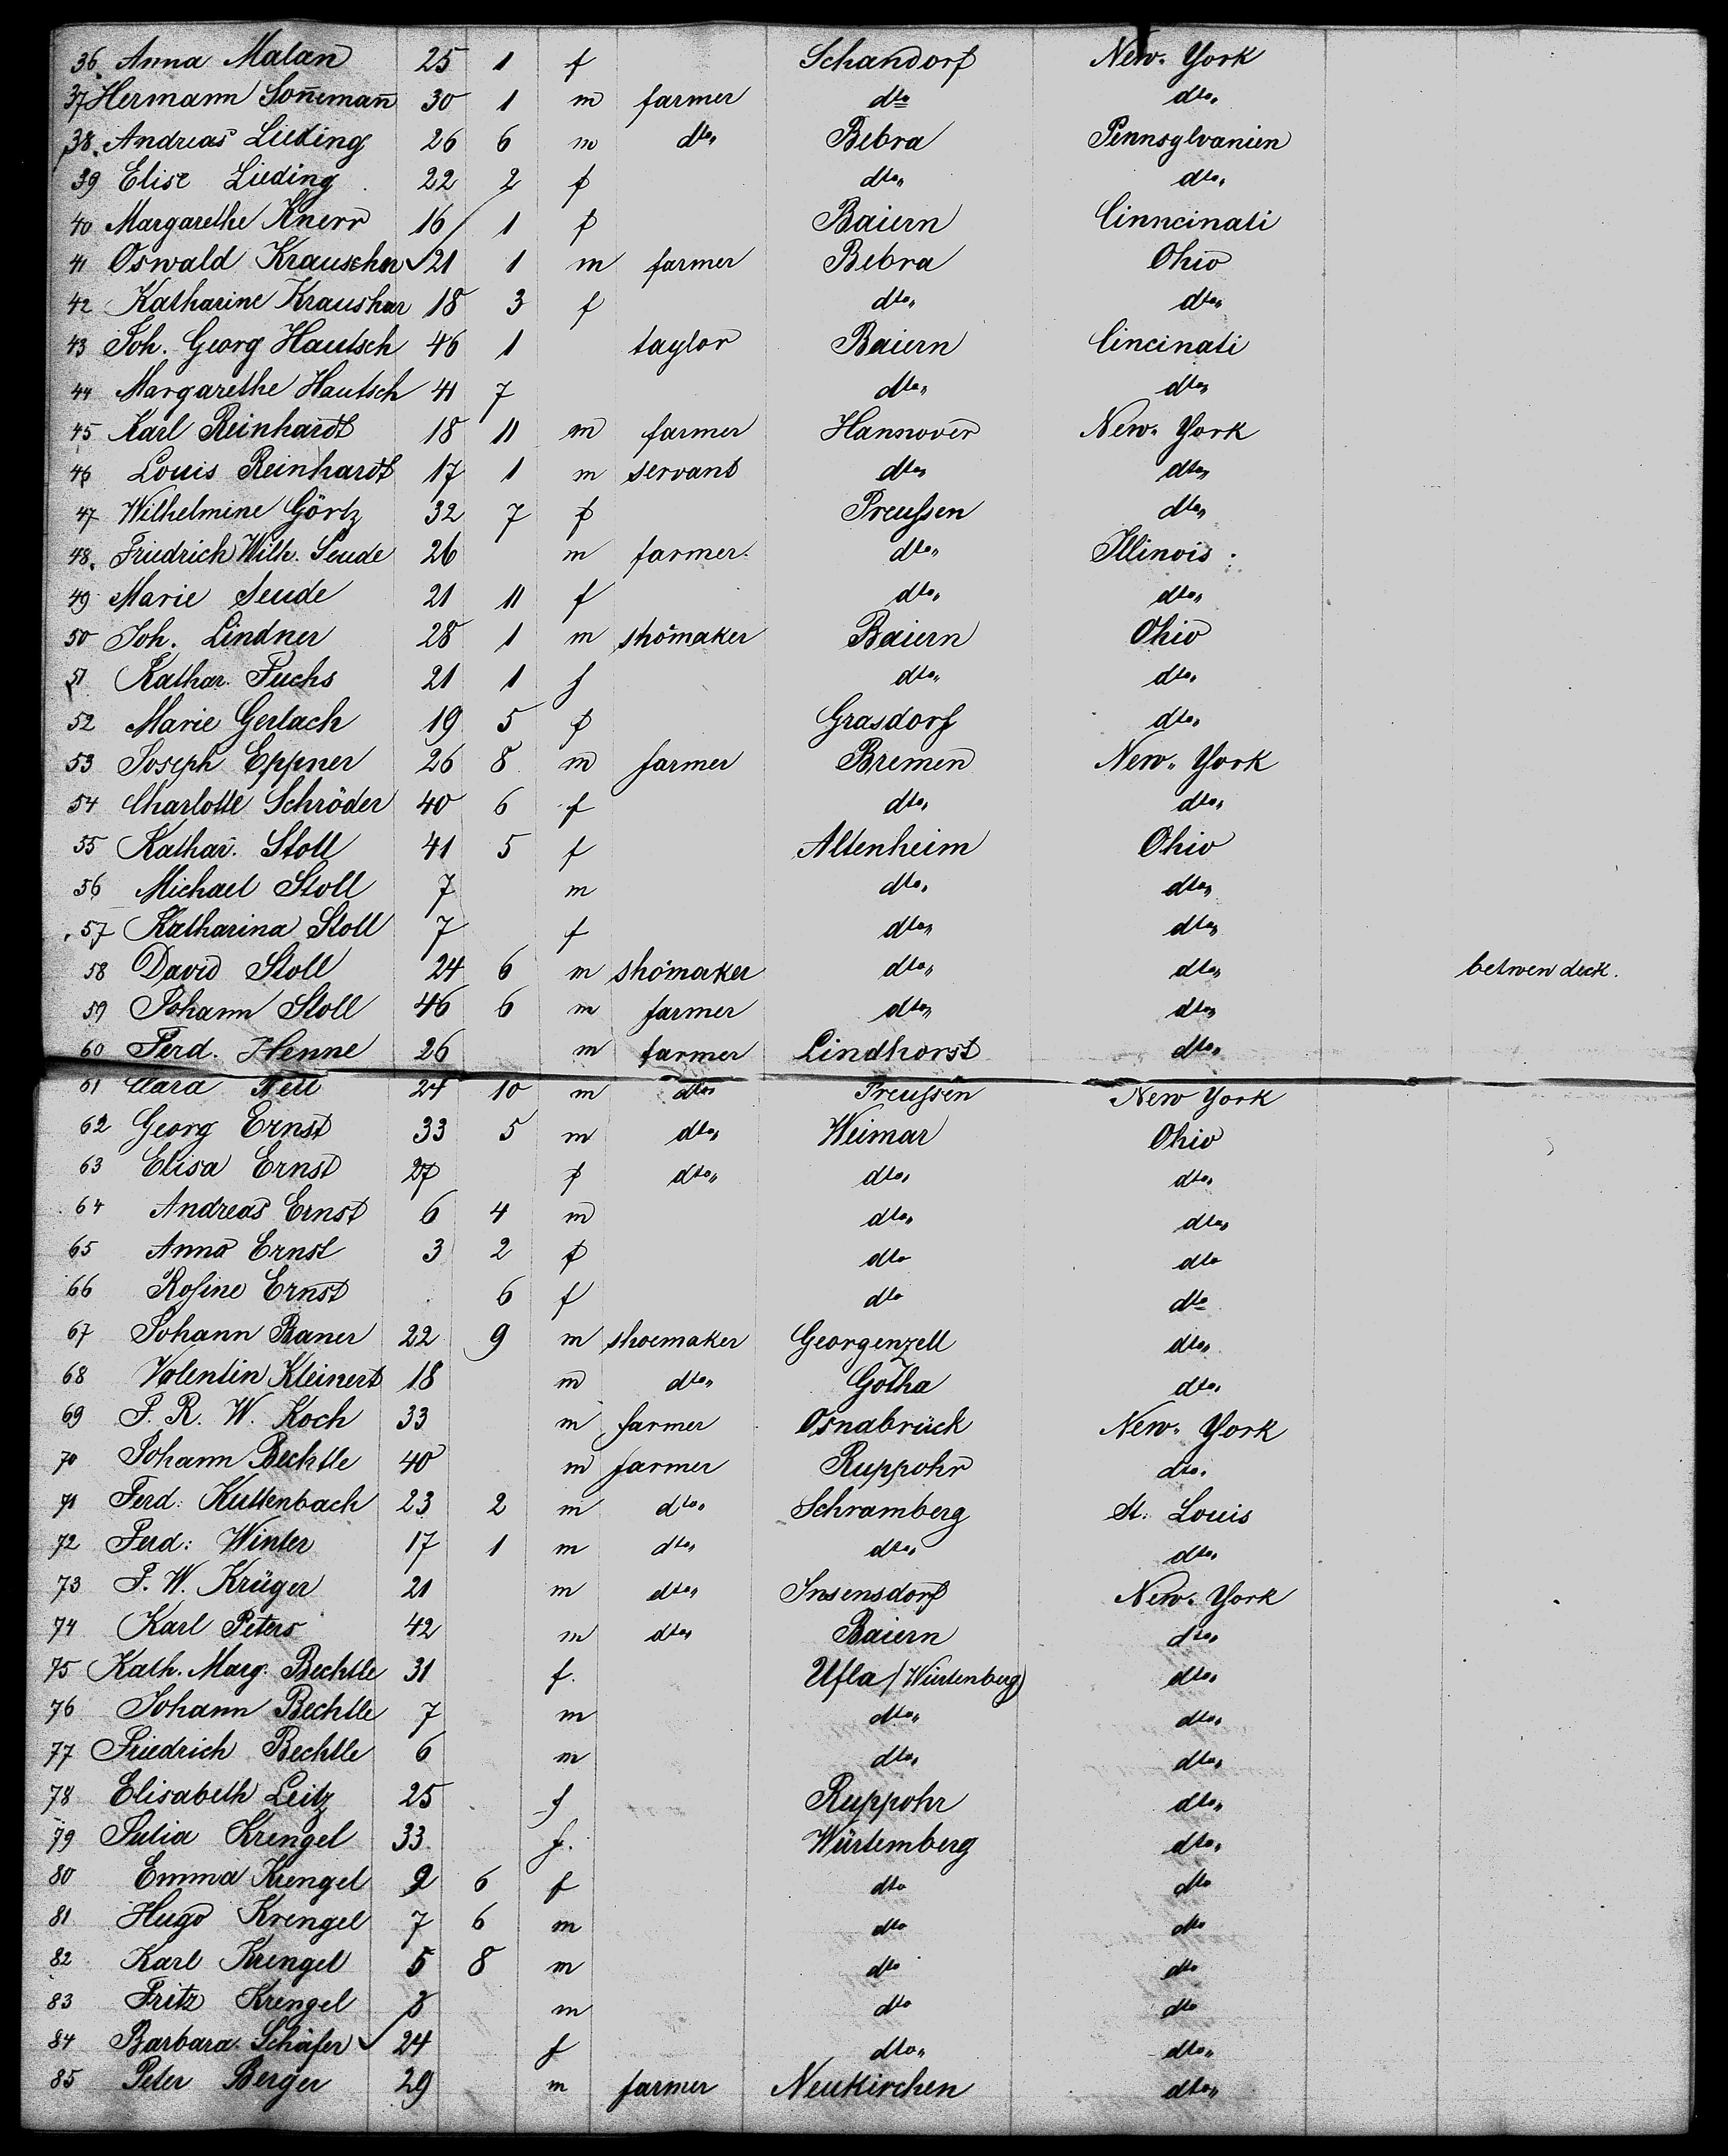 36. Anna Malan 25 1 f Schandorf New-York
37 Hermann Soñemañ 30 1 m farmer dto dto.
38. Andreas Lieding 26 6 m dto. Bebra Pennsylvanien
39 Elise Lieding 22 2 f dto. dto.
40 Margarethe Knerr 16 1 f Baiern Cinncinati
41 Oswald Krauscher 21 1 m farmer Bebra Ohio
42 Katharine Kraushar 18 3 f dto. dto.
43 Joh. Georg Hautsch 46 1 taylor Baiern Cincinati
44 Margarethe Hautsch 41 7 dto. dto.
45 Karl Reinhardt 18 11 m farmer Hannover New-York
46 Louis Reinhardt 17 1 m servant dto. dto.
47 Wilhelmine Görtz 32 7 f Preußen dto.
48. Friedrich Wilh. Seude 26 m farmer. dto. Illinois.
49 Marie Seude 21 11 f dto. dto.
50 Joh. Lindner 28 1 m shomaker Baiern Ohio
51 Kathar. Fuchs 21 1 f dto. dto.
52 Marie Gerlach 19 5 f Grasdorf dto.
53 Joseph Eppner 26 8 m farmer Bremen New-York
54 Charlotte Schröder 40 6 f dto. dto.
55 Kathar. Stoll 41 5 f Altenheim Ohio
56 Michael Stoll 7 m dto. dto.
57 Katharina Stoll 7 f dto. dto.
58 David Stoll 24 6 m shomaker dto. dto. betwen deck.
59 Johann Stoll 46 6 m farmer dto. dto.
60 Ferd. Henne 26 m farmer Lindhorst dto.
61 Clara 24 10 m dto. Preußen New York
62 Georg Ernst 33 5 m dto. Weimar Ohio
63 Elisa Ernst 27 f dto. dto. dto.
64 Andreas Ernst 6 4 m dto. dto.
65 Anna Ernst 3 2 f dto dto
66 Rosine Ernst 6 f dto dto
67 Johann Baner 22 9 m shoemaker Georgenzell dto.
68 Valentin Kleinert 18 m dto. Gotha dto.
69 F. R. W. Koch 33 m farmer Osnabrück New-York
70 Johann Bechtle 40 m farmer Ruppohr dto.
71 Ferd: Kuttenbach 23 2 m dto. Schramberg St. Louis
72 Ferd: Winter 17 1 m dto. dto. dto.
73 F. W. Krüger 21 m dto. Insensdorf New-York
74 Karl Peters 42 m dto. Baiern dto.
75 Kath. Marg. Bechtle 31 f. Ufla (Würtenberg) dto.
76 Johann Bechtle 7 m dto. dto.
77 Friedrich Bechtle 6 m dto. dto.
78 Elisabeth Leitz 25 f Ruppohr dto.
79 Julia Krengel 33 f. Würtemberg dto.
80 Emma Krengel 9 6 f dto dto
81 Hugo Krengel 7 6 m dto dto
82 Karl Krengel 5 8 m dto dto
83 Fritz Krengel 3 m dto dto
84 Barbara Schäfer 24 f dto. dto.
85 Peter Berger 29 m farmer Neukirchen dto.